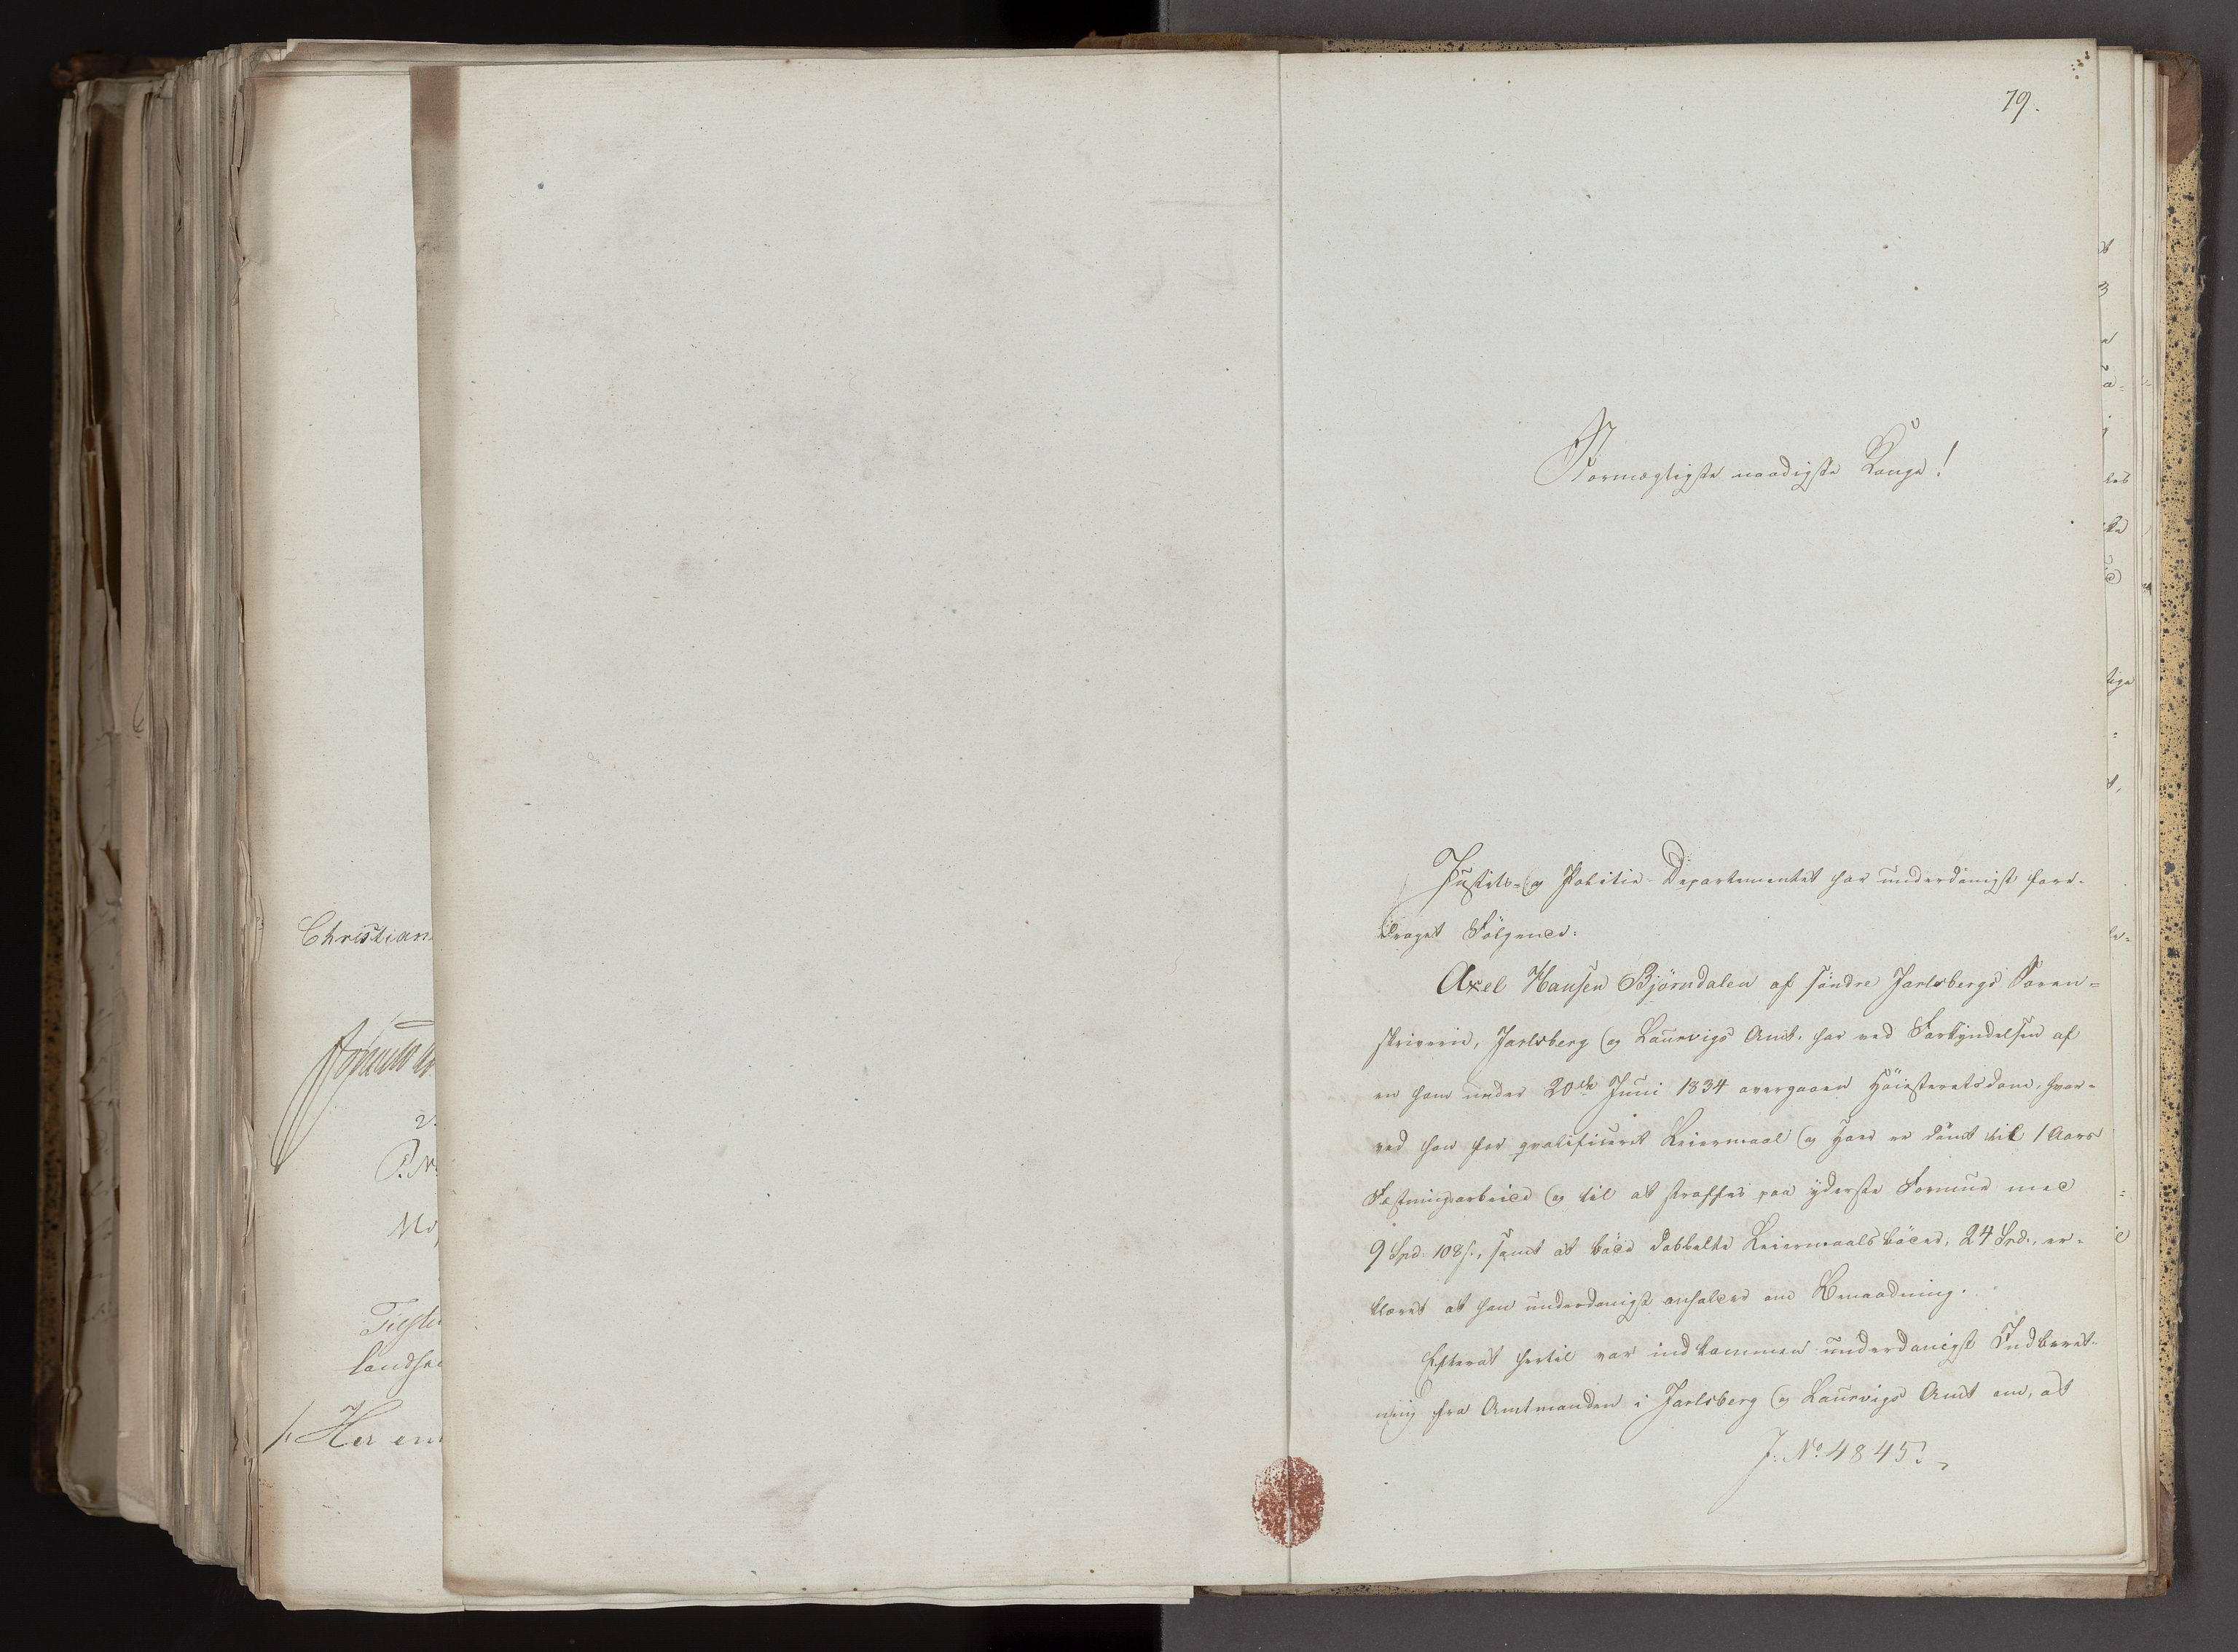 79.
Stormægtigste naadigste Konge!
Justits- og Politie-Departementet har underdanigst fore-
draget Følgende:
Axel Hansen Bjørndalen af søndre Jarlsbergs Soren-
skriverie, Jarlsberg og Laurvigs Amt, har ved Forkyndelsen af
en ham under 20de Juni 1834 overgaaen Høiesteretsdom, hvor-
ved han for qvalificeret Leiermaal og Hoer er dømt til 1 Aars
Fæstningsarbeide og til at straffes paa yderste Formue med
9 Spd. 108 s., samt at bøde dobbelte Leiermaalsbøder, 24 Spd., er-
klæret at han underdanigst anholder om Benaadning.
Efterat hertil var indkommen underdanigst Indberet-
ning fra Amtmanden i Jarlsberg og Laurvigs Amt om, at
J: No. 4845.
Christian
P. M.
landsh
/: Her em